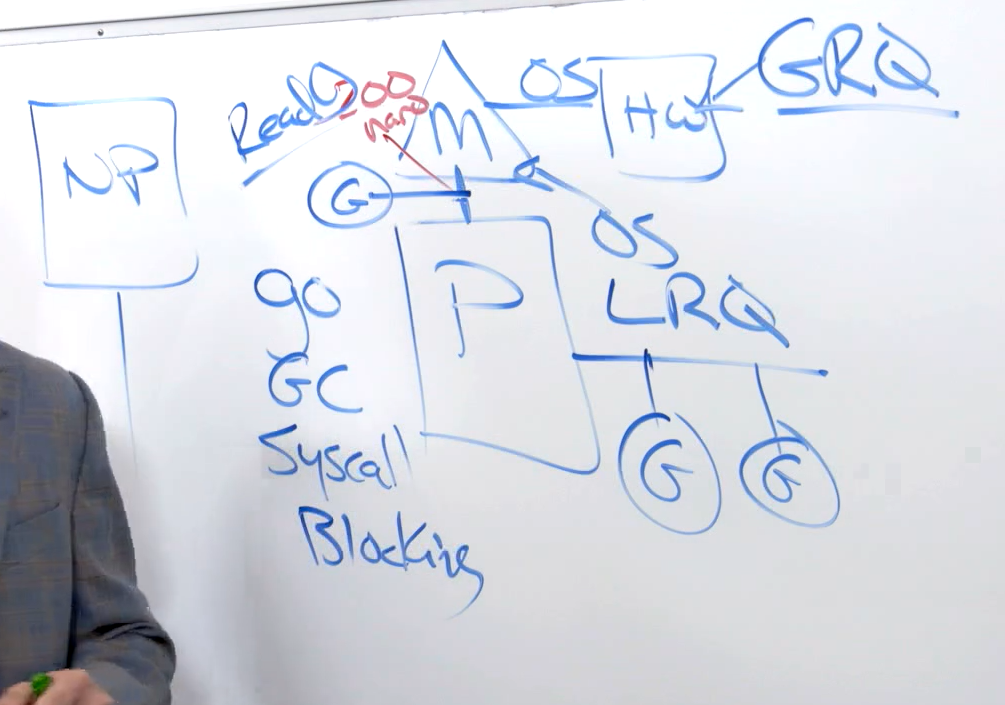 NP
Read()
200
nano
M
OS
HW
GRQ
G
OS
P
LRQ
G
G
go
GC
Syscall
Blocking